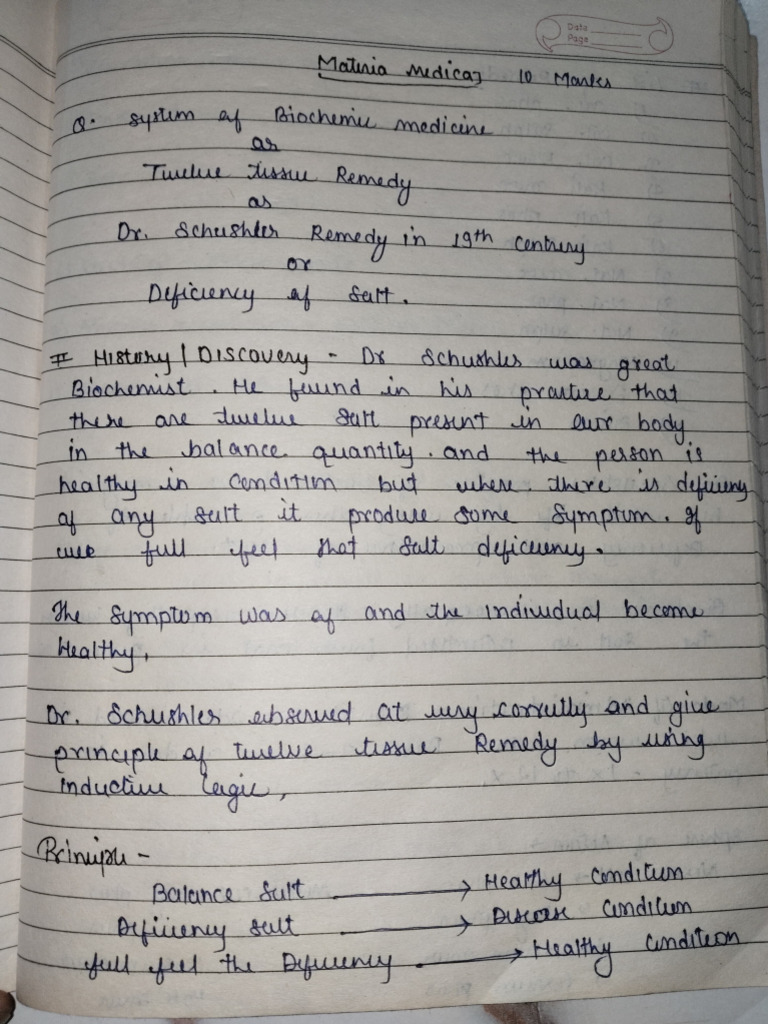 Date
Page
Materia Medica 10 Marks
Q. System of Biochemic medicine
or
Twelve tissue Remedy
or
Dr. Schushler Remedy in 19th century
or
Deficiency of Salt.
# History / DISCOVERY - Dr Schushler was great
Biochemist. He found in his practice that
there are twelve salt present in our body
in the balance quantity. and the person is
healthy in condition but where there is deficiency
of any salt it produce some Symptom. If
we full feel that salt deficiency.
The Symptom was of and the individual become
Healthy,
Dr. Schushler observed at very correctly and give
principle of twelve tissue Remedy by using
inductive logic,
Principle -
Balance salt → Healthy condition
Deficiency salt → Disease condition
full feel the Deficiency → Healthy condition